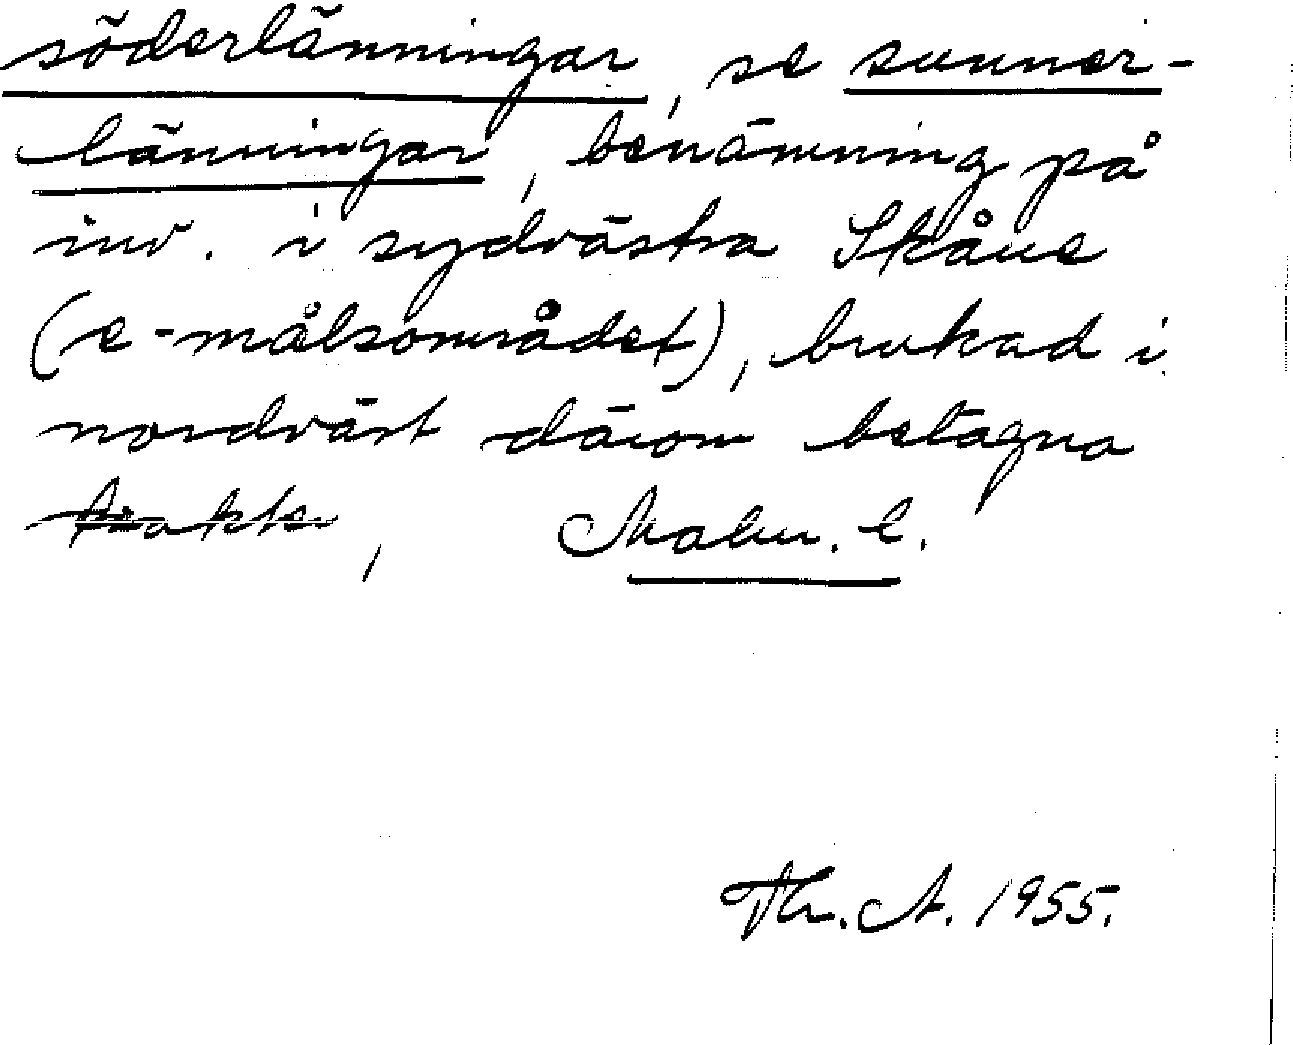 söderlänningar, se sunner-
länningar, benämning på
inv. i sydvästra Skåne
(e-målsområdet), brukad i
nordväst därom belägna
trakter, Malm. l.
Th.A. 1955.